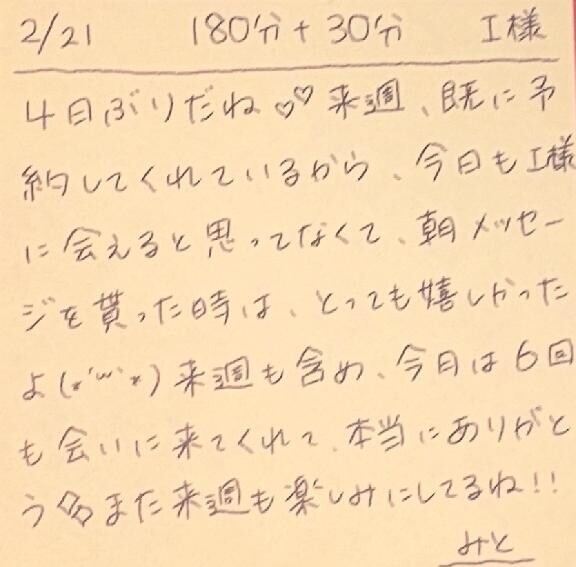 2/21 180分+30分 I様
4日ぶりだね♡♡ 来週、既に予
約してくれているから、今日もI様
に会えると思ってなくて、朝メッセー
ジを貰った時は、とっても嬉しかった
よ(*'ω'*) 来週も含め、今日は6回
も会いに来てくれて、本当にありがと
う また来週も楽しみにしてるね!!
みと